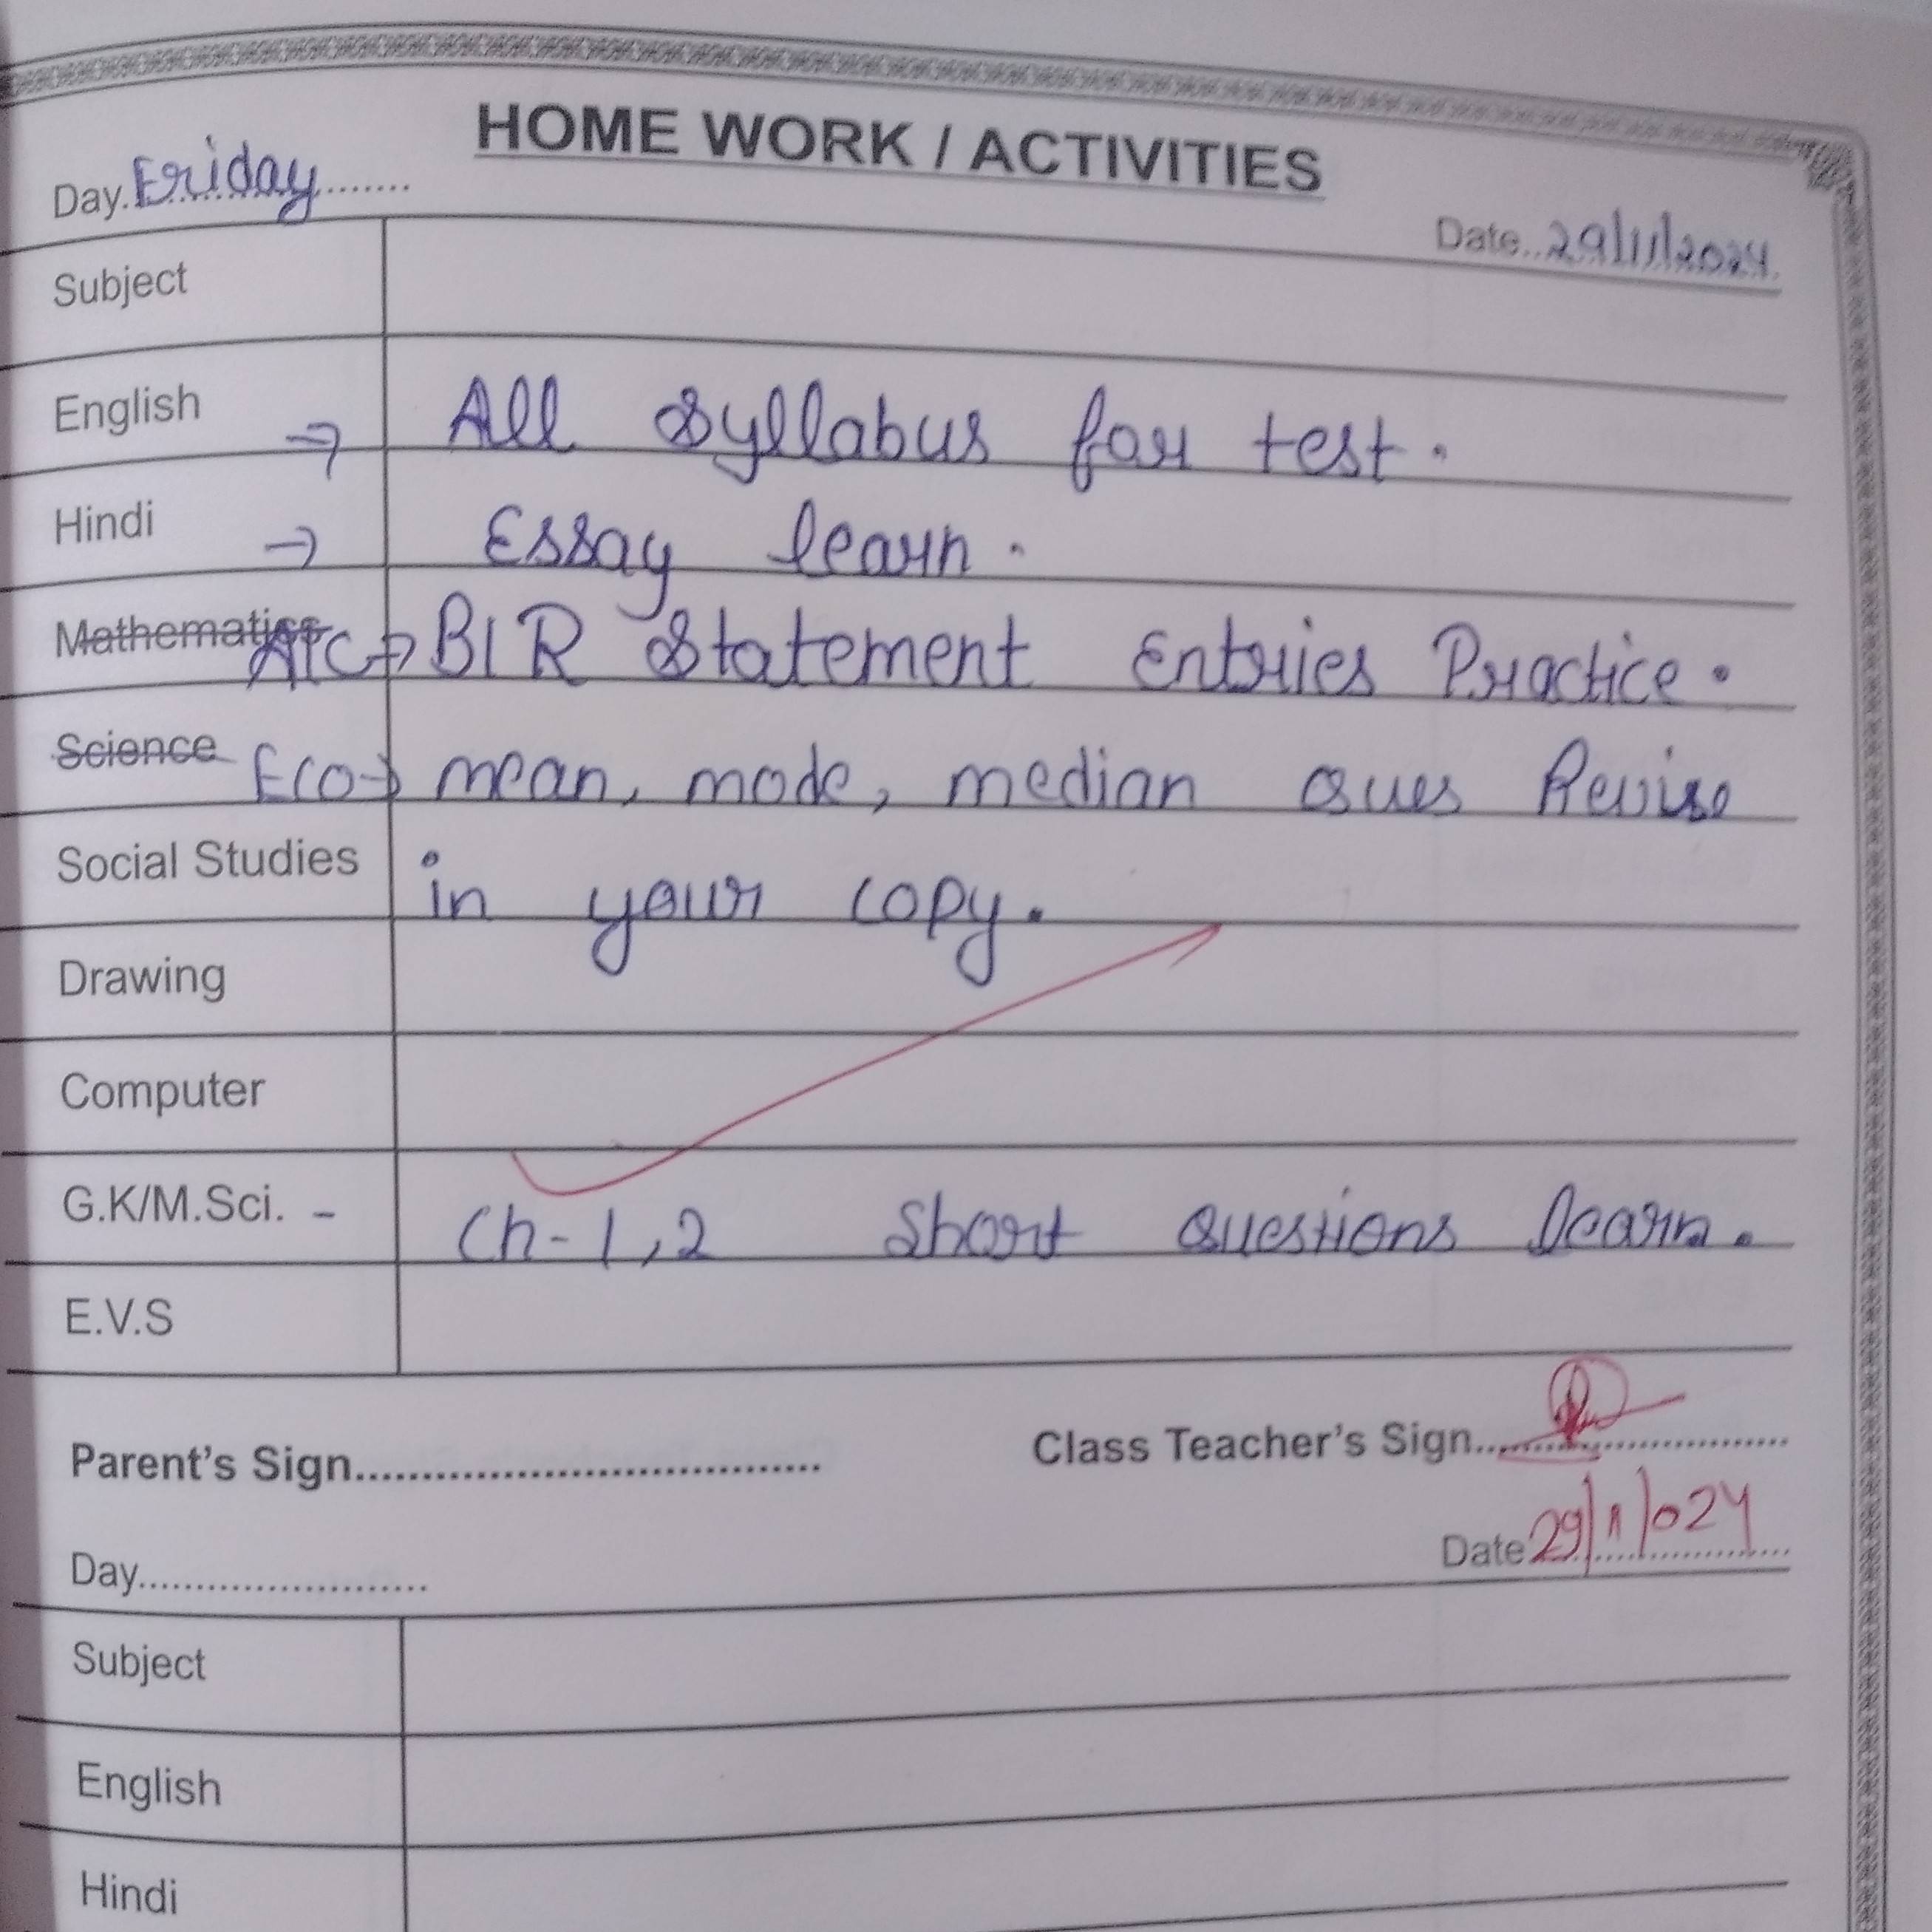 HOME WORK / ACTIVITIES
Day. Friday
Date.. 29/11/2024
Subject
English → All Syllabus for test.
Hindi → Essay learn.
Mathematics A/C → B/R Statement Entries Practice.
Science Eco → mean, mode, median Ques Revise
Social Studies in your copy.
Drawing
Computer
G.K/M.Sci. - Ch-1,2 Short Questions learn.
E.V.S
Parent's Sign.......... Class Teacher's Sign..........
Day.......... Date 29/11/024
Subject
English
Hindi